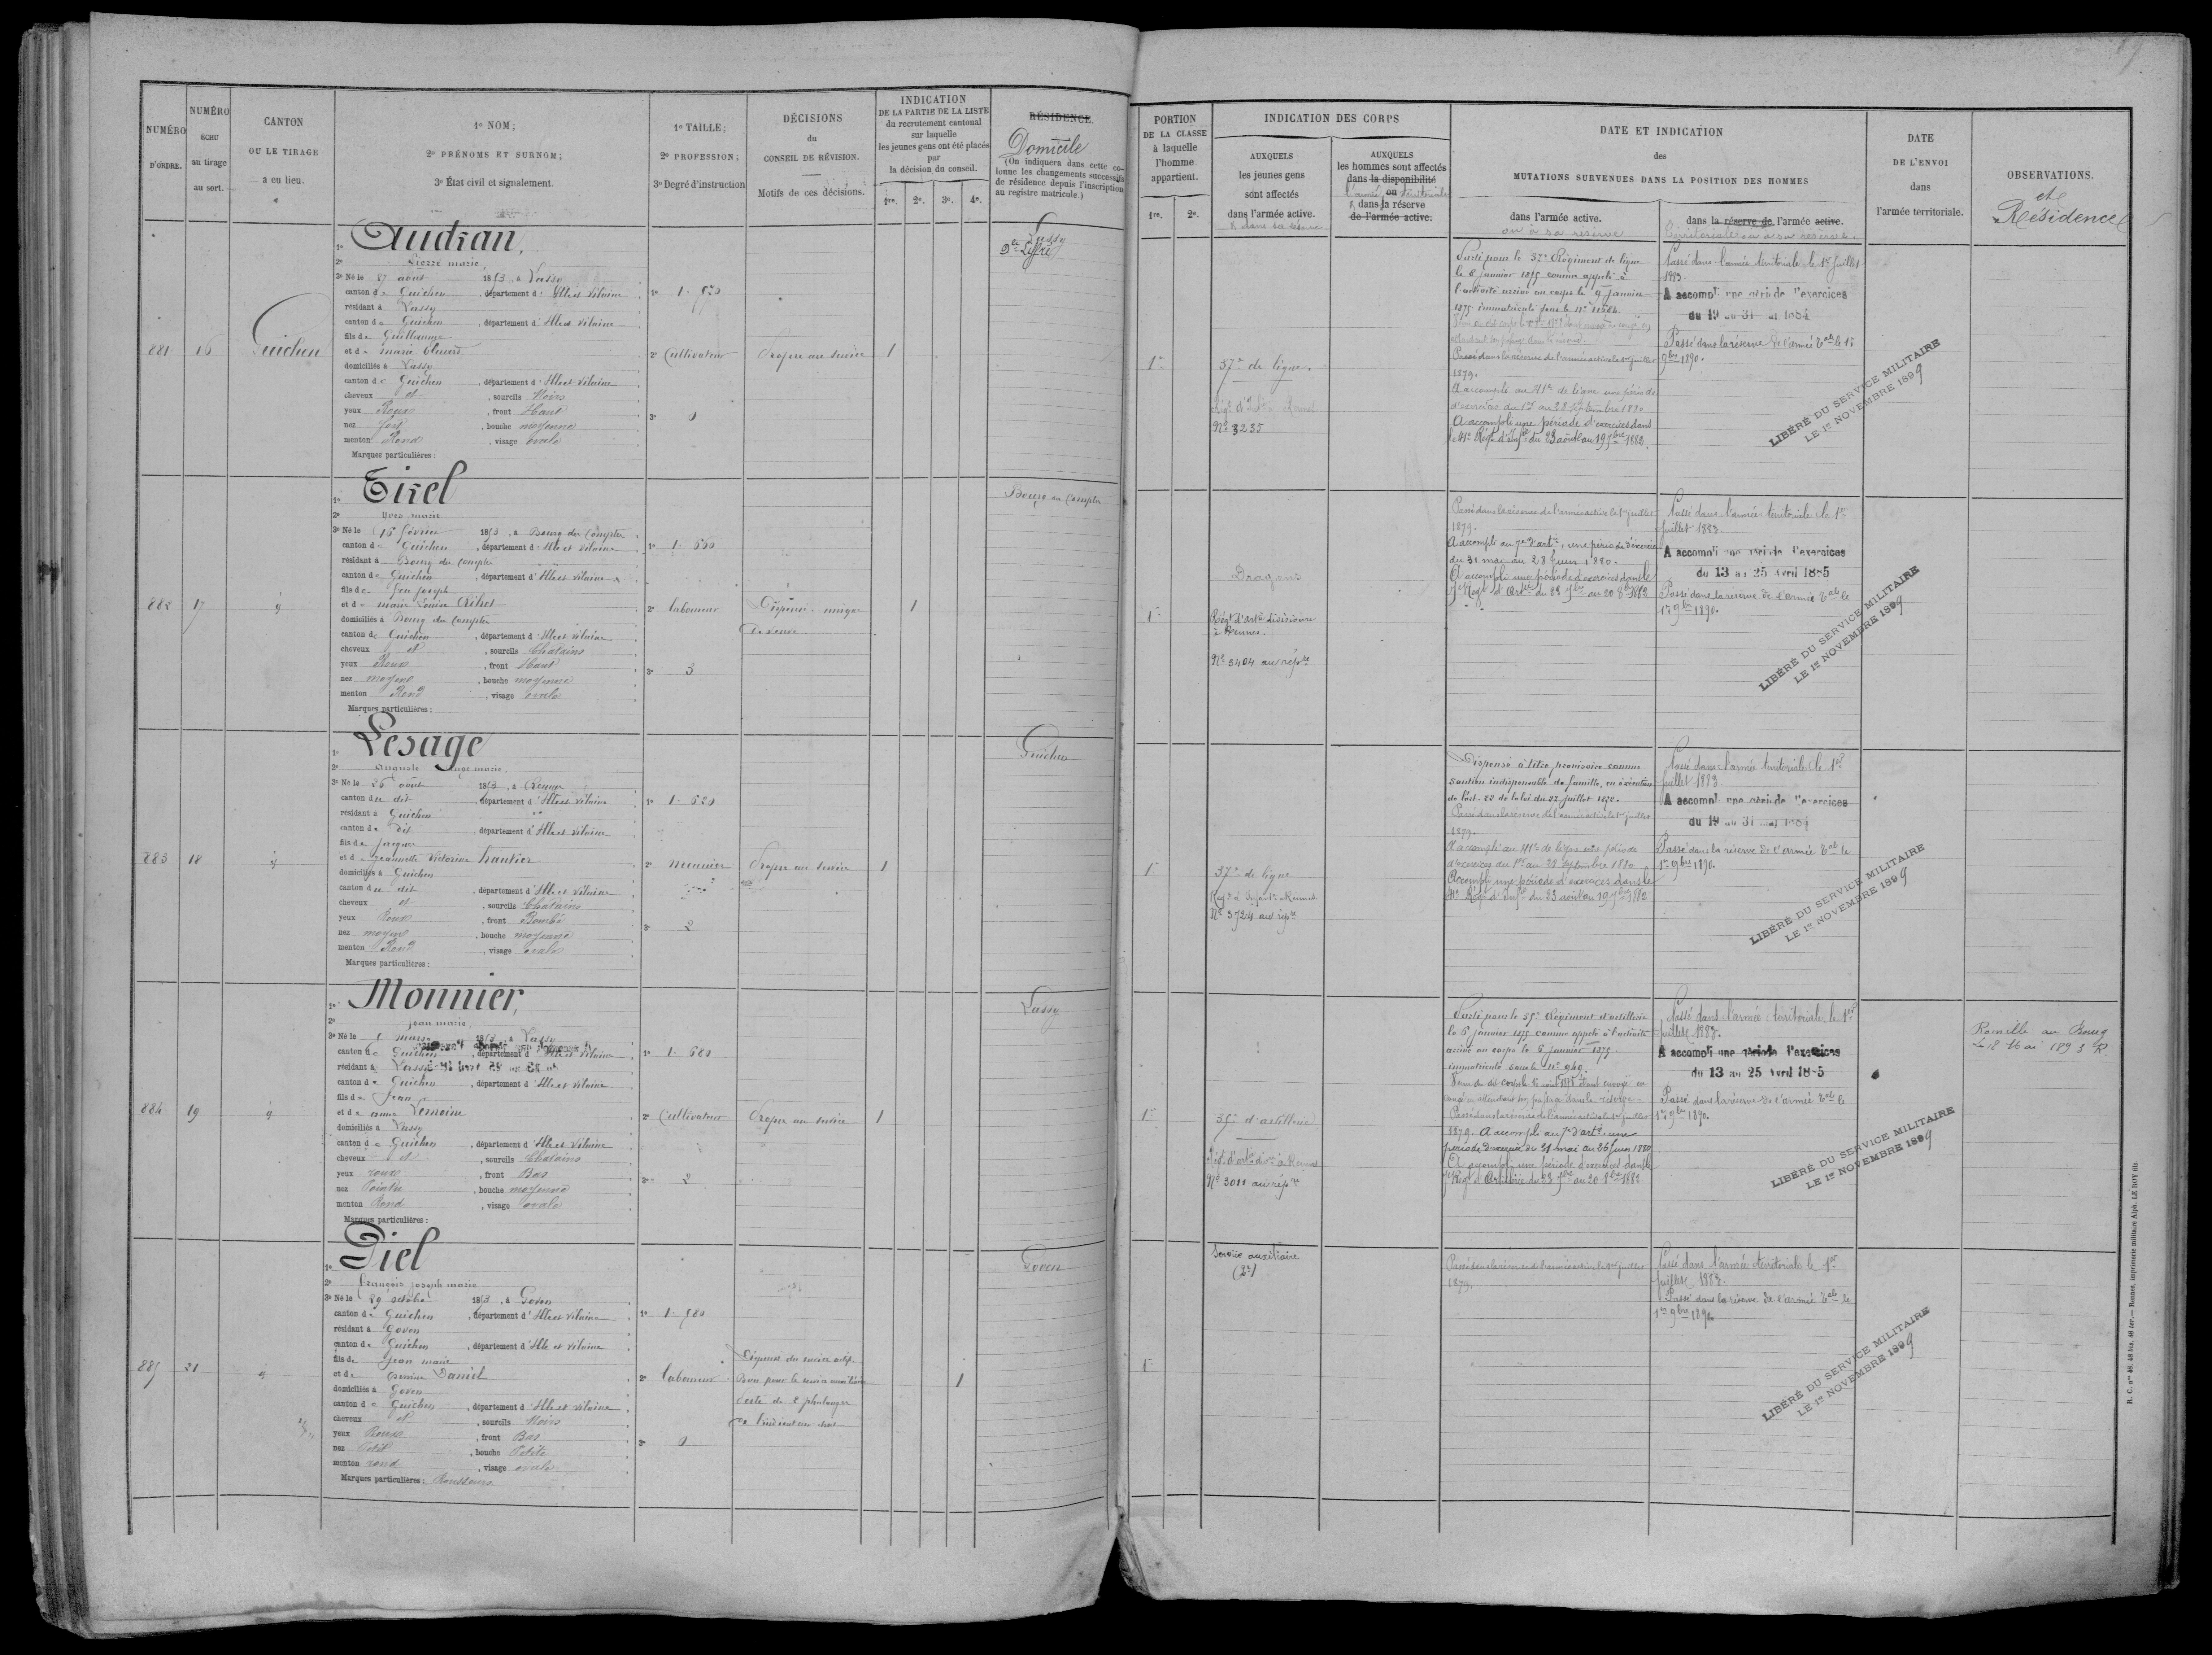 NUMÉRO
D'ORDRE.
NUMÉRO
ÉCHU
au tirage
au sort.
CANTON
OU LE TIRAGE
a eu lieu.
1º NOM;
2º PRÉNOMS ET SURNOM;
3º État civil et signalement.
1º TAILLE;
2º PROFESSION;
3º Degré d'instruction
DÉCISIONS
du
CONSEIL DE RÉVISION.
Motifs de ces décisions.
INDICATION
DE LA PARTIE DE LA LISTE
du recrutement cantonal
sur laquelle
les jeunes gens ont été placés
par
la décision du conseil.
1re. 2e. 3e. 4e.
RÉSIDENCE.
Domicile
(On indiquera dans cette co-
lonne les changements successifs
de résidence depuis l'inscription
au registre matricule.)
PORTION
DE LA CLASSE
à laquelle
l'homme
appartient.
1re. 2e.
INDICATION DES CORPS
AUXQUELS
les jeunes gens
sont affectés
dans l'armée active.
& dans sa réserve
AUXQUELS
les hommes sont affectés
dans la disponibilité
l'armée ou territoriale
& dans la réserve
de l'armée active.
DATE ET INDICATION
des
MUTATIONS SURVENUES DANS LA POSITION DES HOMMES
dans l'armée active.
ou à sa réserve
dans la réserve de l'armée active.
territoriale ou à sa réserve.
DATE
DE L'ENVOI
dans
l'armée territoriale.
OBSERVATIONS.
et
Résidence
881
16
Guichen
1º Audran,
2º Pierre marie,
3º Né le 27 août 1853, à Lassy
canton de Guichen, département d'Ille et Vilaine
résidant à Lassy
canton de Guichen, département d'Ille et Vilaine
fils de Guillaume
et de marie
domiciliés à Lassy
canton de Guichen, département d'Ille et Vilaine
cheveux et, sourcils Noirs
yeux Roux, front Haut
nez fort, bouche moyenne
menton Rond, visage ovale
Marques particulières:
2º Cultivateur
3º 0
Propre au service
1
Lassy
1re
37e de ligne.
Rég. d'Inf.
Nº 3235
le 8 janvier 1875 comme appelé à
l'activité arrivé au corps le 9 janvier
1875 immatriculé sous le Nº 11684.
Passé dans la réserve de l'armée active le 1er juillet
1879.
A accompli au 41e de ligne une période
d'exercices du 1er au 28 Septembre 1880
A accompli une période d'exercices dans
le 41e Régt d'Infie du 23 août au 19 7bre 1882.
Passé dans l'armée territoriale le 1er juillet
1883.
A accompli une période d'exercices
du 19 au 31 mai 1884
Passé dans la réserve de l'armée tale le 1er
9bre 1890.
LIBÉRÉ DU SERVICE MILITAIRE
LE 1er NOVEMBRE 1899
882
17
1º
2º Yves marie
3º Né le 16 février 1853, à Bourg des Comptes
canton de Guichen, département d'Ille et Vilaine
résidant à Bourg des Comptes
canton de Guichen, département d'Ille et Vilaine
fils de feu Joseph
et de marie Louise
domiciliés à Bourg des Comptes
canton de Guichen, département d'Ille et Vilaine
cheveux et, sourcils Chatains
yeux Roux, front Haut
nez moyen, bouche moyenne
menton Rond, visage ovale
Marques particulières:
2º Laboureur
3º 3
Dispensé unique
de veuve
1
Bourg des Comptes
1re
Dragons
Régt d'artie divisionre
à Rennes.
Nº 3404 au répre
Passé dans la réserve de l'armée active le 1er juillet
1879.
A accompli au 7e d'artie, une période d'exercice
du 31 mai au 28 Juin 1880.
A accompli une période d'exercices dans le
7e Régt d'Artie du 23 7bre au 20 8bre 1882
Passé dans l'armée territoriale le 1er
juillet 1883.
A accompli une période d'exercices
du 13 au 25 Avril 1885
Passé dans la réserve de l'armée tale le
1er 9bre 1890.
LIBÉRÉ DU SERVICE MILITAIRE
LE 1er NOVEMBRE 1899
883
18
1º Lesage
2º Auguste Ange marie,
3º Né le 26 août 1853, à Rennes
canton du dit, département d'Ille et Vilaine
résidant à Guichen
canton du dit, département d'Ille et Vilaine
fils de Jacques
et de Jeannette Victorine hautier
domiciliés à Guichen
canton du dit, département d'Ille et Vilaine
cheveux et, sourcils Chatains
yeux Roux, front Bombé
nez moyen, bouche moyenne
menton Rond, visage ovale
Marques particulières:
1º 1. 620
2º meunier
3º 2
Propre au service
1
Guichen
1re
37e de ligne
Nº 3724 au répre
Dispensé à titre provisoire comme
soutien indispensable de famille, en exécution
de l'art. 22 de la loi du 27 juillet 1872.
Passé dans la réserve de l'armée active le 1er juillet
1879.
A accompli au 41e de ligne une période
d'exercices du 1er au 28 septembre 1880
Accompli une période d'exercices dans le
41e Régt d'Infie du 23 août au 19 7bre 1882
Passé dans l'armée territoriale le 1er
juillet 1883.
A accompli une période d'exercices
du 19 au 31 mai 1884
Passé dans la réserve de l'armée tale le
1er 9bre 1890.
LIBÉRÉ DU SERVICE MILITAIRE
LE 1er NOVEMBRE 1899
884
19
1º Monnier,
2º Jean marie,
3º Né le mars 1853, à Lassy
canton de Guichen, département d'Ille et Vilaine
résidant à Lassy
canton de Guichen, département d'Ille et Vilaine
fils de Jean
et de anne Lemoine
domiciliés à Lassy
canton de Guichen, département d'Ille et Vilaine
cheveux et, sourcils Chatains
yeux roux, front Bas
nez Pointu, bouche moyenne
menton Rond, visage ovale
Marques particulières:
1º 1. 680
2º Cultivateur
3º 2
Propre au service
1
Lassy
1re
35e d'artillerie
Nº 3011 au répre
Parti pour le 35e Régiment d'artillerie
le 5 janvier 1875 comme appelé à l'activité
arrivé au corps le 6 janvier 1875.
immatriculé sous le Nº 940.
Passé dans la réserve de l'armée active le 1er juillet
1879. A accompli au 7e d'artie une
période d'exercice du 31 mai au 26 Juin 1880
A accompli une période d'exercices dans le
7e Régt d'Artillerie du 23 7bre au 20 8bre 1882.
Passé dans l'armée territoriale le 1er
juillet 1883.
A accompli une période d'exercices
du 13 au 25 Avril 1885
Passé dans la réserve de l'armée tale le
1er 9bre 1890.
LIBÉRÉ DU SERVICE MILITAIRE
LE 1er NOVEMBRE 1899
Romillé au Bourg
Le 12 Mai 1893 R.
885
21
1º Piel
2º François Joseph marie
3º Né le 29 octobre 1853, à Goven
canton de Guichen, département d'Ille et Vilaine
résidant à Goven
canton de Guichen, département d'Ille et Vilaine
fils de Jean marie
et de Perrine Daniel
domiciliés à Goven
canton de Guichen, département d'Ille et Vilaine
cheveux et, sourcils Noirs
yeux Roux, front Bas
nez Petit, bouche Petite
menton rond, visage ovale
Marques particulières: Rousseurs
2º Laboureur
3º 0
Dispensé du service actif.
Bon pour le service auxiliaire
Perte de 2 phalanges
de l'indicateur droit
1
Goven
1re
Service auxiliaire
(2e)
Passé dans la réserve de l'armée active le 1er juillet
1879.
Passé dans l'armée territoriale le 1er
juillet 1883.
Passé dans la réserve de l'armée tale le
1er 9bre 1890
LIBÉRÉ DU SERVICE MILITAIRE
LE 1er NOVEMBRE 1899
Rennes, imprimerie militaire Alph. LE ROY fils